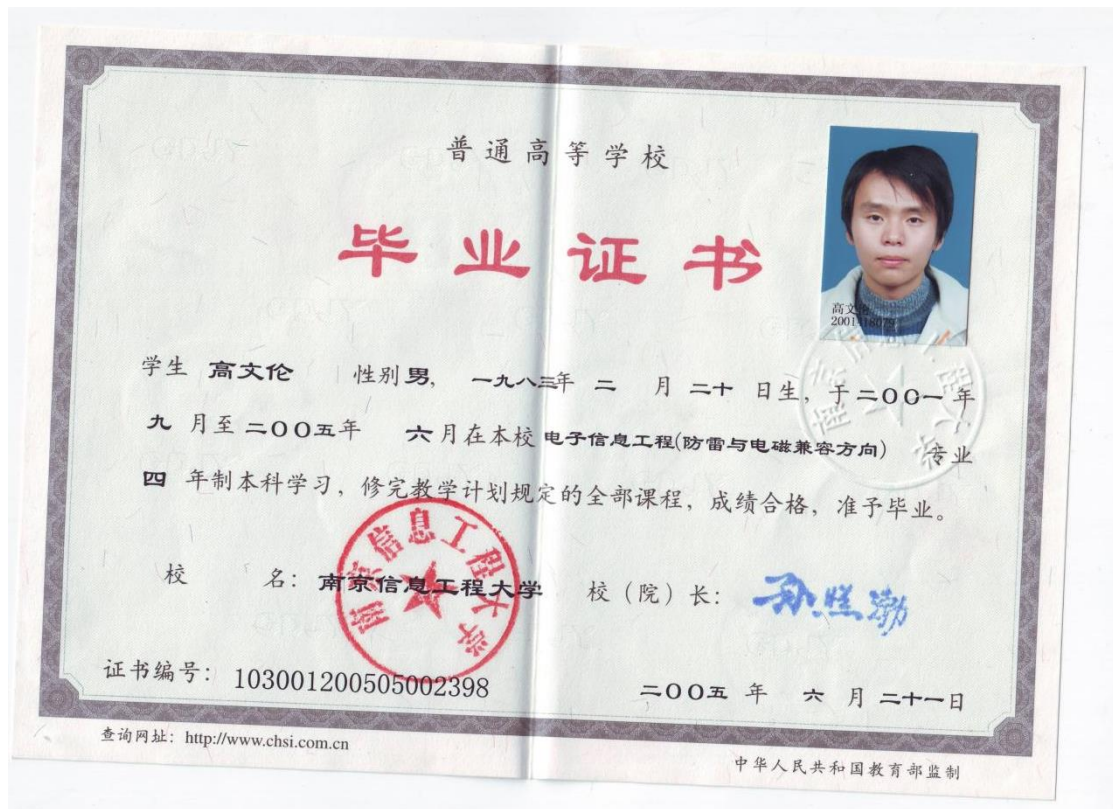 普通高等学校
毕业证书
高文伦
学生 高文伦 性别 男, 一九八三年 二 月 二十 日生, 于二〇〇一年
九 月至 二〇〇五年 六月在本校 电子信息工程(防雷与电磁兼容方向) 专业
四 年制本科学习, 修完教学计划规定的全部课程, 成绩合格, 准予毕业。
校 名: 南京信息工程大学 校(院)长: 孙照渤
南京信息工程大学
证书编号: 103001200505002398
二〇〇五 年 六 月 二十一日
查询网址: http://www.chsi.com.cn
中华人民共和国教育部监制